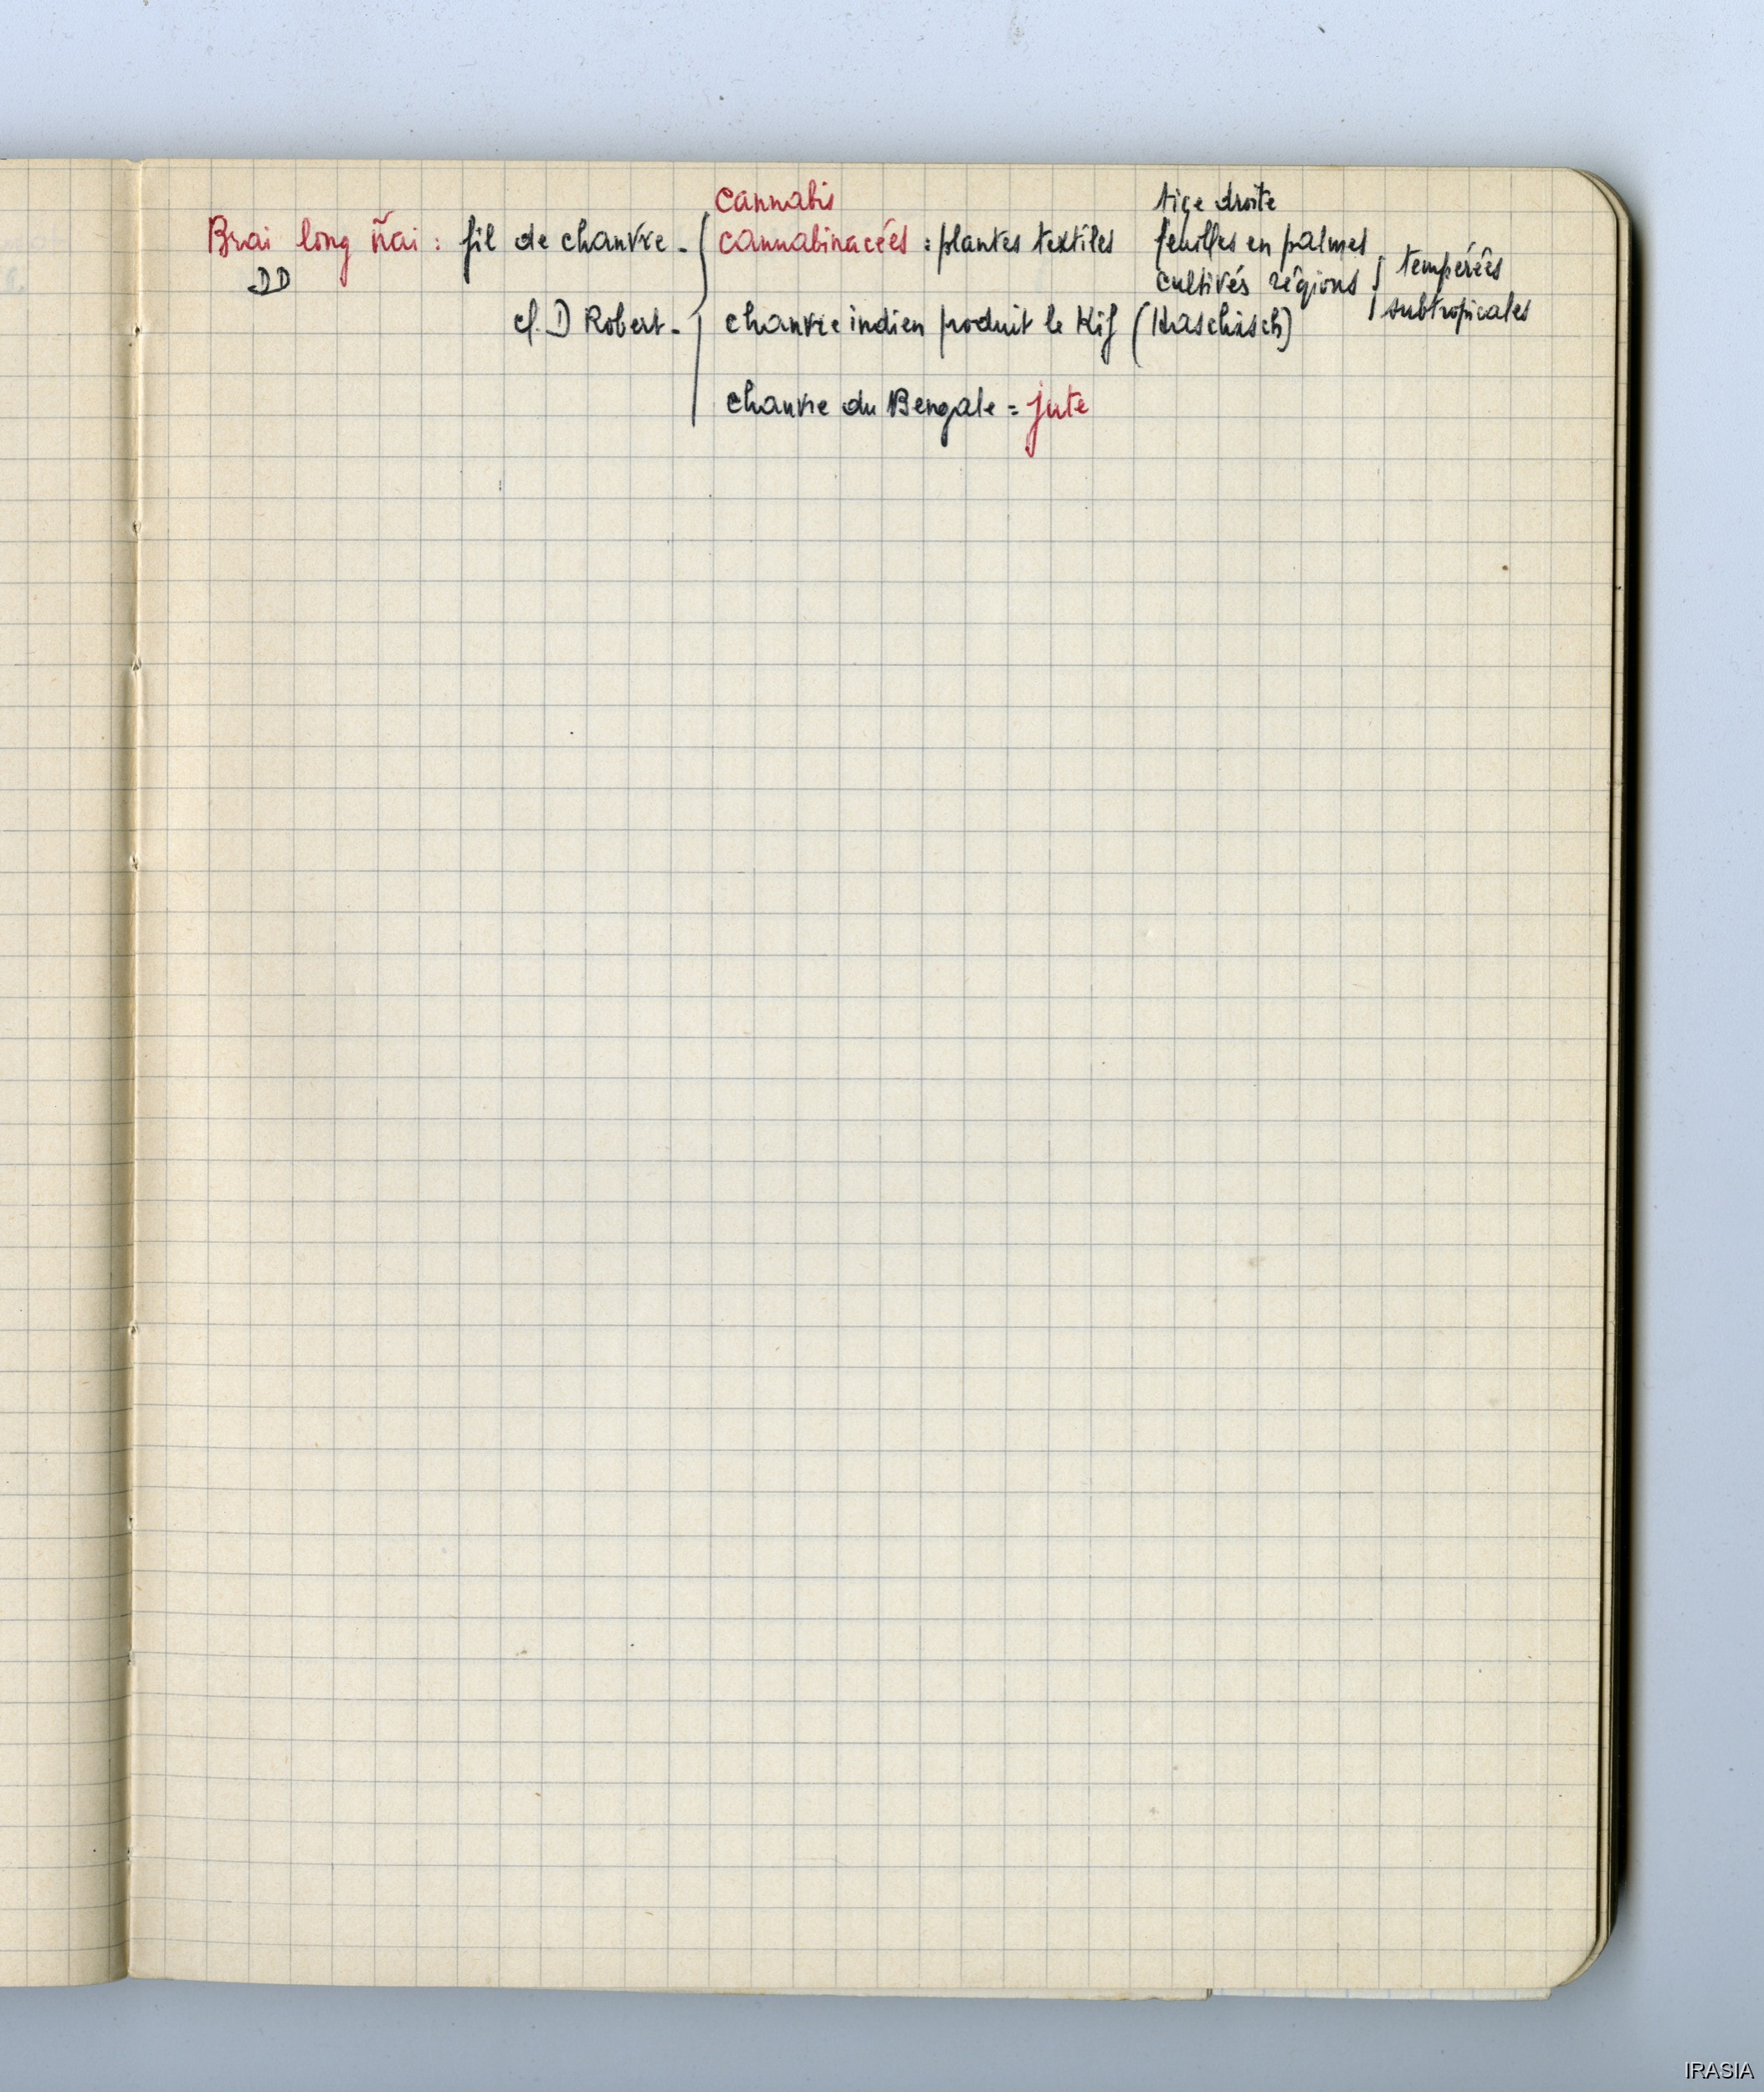 Cannabis
tige droite
Brai long ñai : fil de chanvre - cannabinacées : plantes textiles feuilles en palmes
DD
cultivés régions tempérées
subtropicales
cf. D Robert - chanvre indien produit le Kif (Haschisch)
chanvre du Bengale = jute
IRASIA